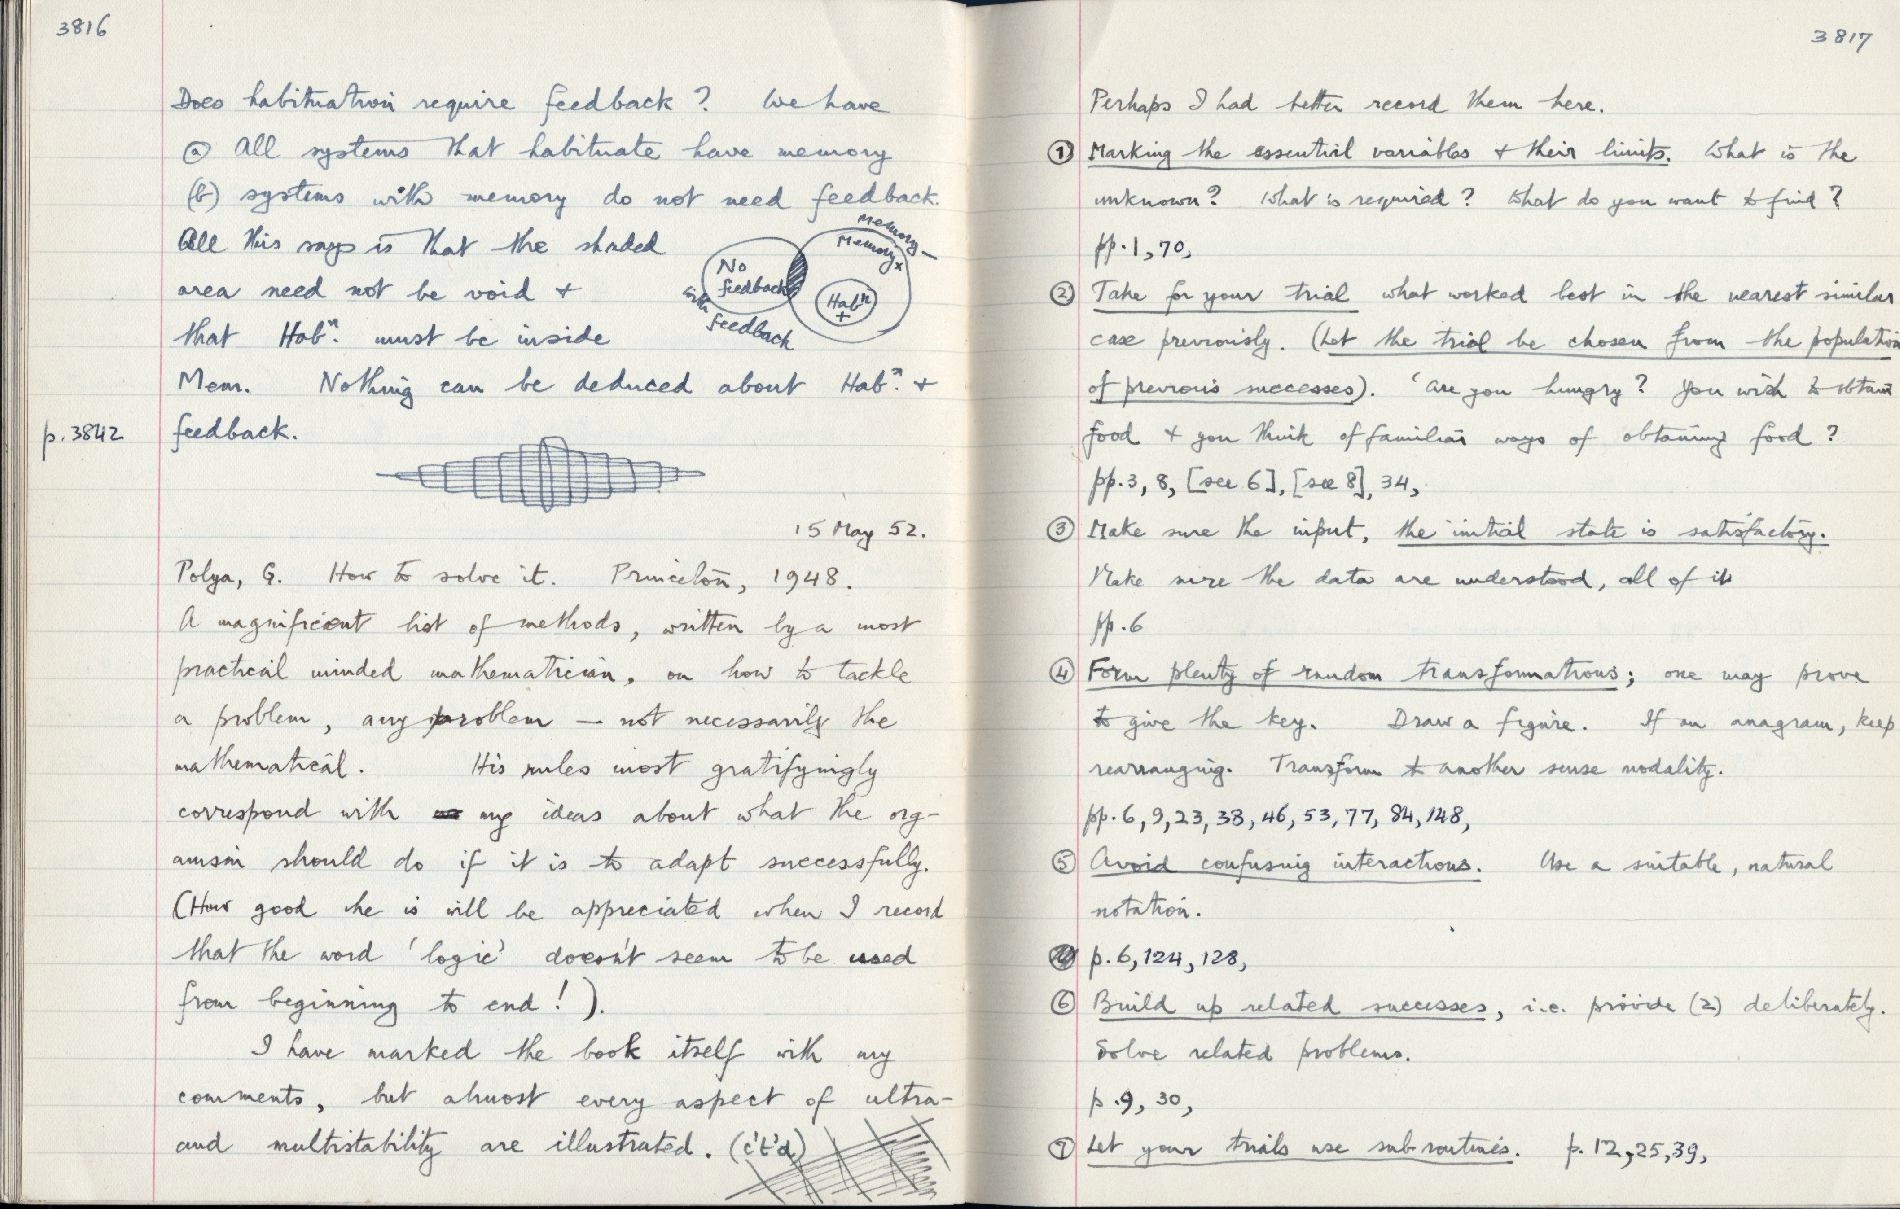 3816
Does habituation require feedback? We have
(a) All systems that habituate have memory
(b) systems with memory do not need feedback.
All this says is that the shaded
area need not be void +
that Habⁿ. must be inside
Mem. Nothing can be deduced about Habⁿ. +
p.3842
feedback.
No
feedback
with
feedback
Memory -
Memory +
Habⁿ
+
15 May 52.
Polya, G. How to solve it. Princeton, 1948.
A magnificent list of methods, written by a most
practical minded mathematician, on how to tackle
a problem, any problem — not necessarily the
mathematical. His rules most gratifyingly
correspond with my ideas about what the org-
anism should do if it is to adapt successfully.
(How good he is will be appreciated when I record
that the word 'logic' doesn't seem to be used
from beginning to end!).
I have marked the book itself with my
comments, but almost every aspect of ultra-
and multistability are illustrated. (c't'd)
3817
Perhaps I had better record them here.
① Marking the essential variables + their limits. What is the
unknown? What is required? What do you want to find?
pp.1, 70,
② Take for your trial what worked best in the nearest similar
case previously. (Let the trial be chosen from the population
of previous successes). 'Are you hungry? You wish to obtain
food + you think of familiar ways of obtaining food?
pp.3, 8, [see 6], [see 8], 34,
③ Make sure the input, the initial state is satisfactory.
Make sure the data are understood, all of it
pp.6
④ Form plenty of random transformations; one may prove
to give the key. Draw a figure. If an anagram, keep
rearranging. Transform to another sense modality.
pp. 6, 9, 23, 38, 46, 53, 77, 84, 148,
⑤ Avoid confusing interactions. Use a suitable, natural
notation.
p. 6, 124, 128,
⑥ Build up related successes, i.e. provide (2) deliberately.
Solve related problems.
p.9, 30,
⑦ Let your trials use sub-routines. p. 12, 25, 39,